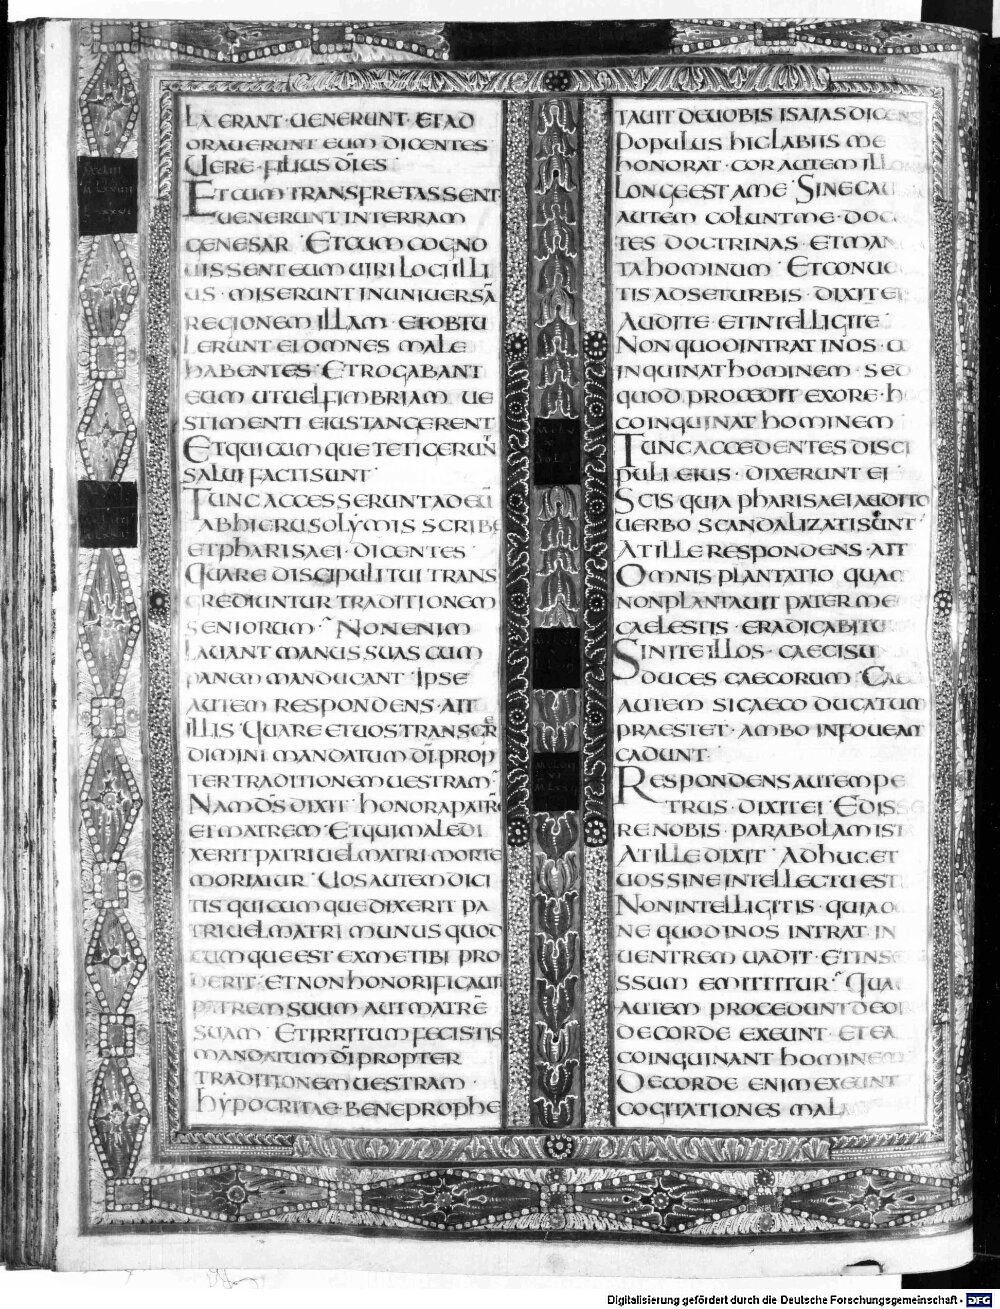 LA ERANT · UENERUNT · ET AD
ORAUERUNT EUM DICENTES
UERE · FILIUS DI ES
ET CUM TRANSFRETASSENT
UENERUNT IN TERRAM
GENESAR · ET CUM COGNO
UISSENT EUM UIRI LOCI ILLI
US · MISERUNT IN UNIUERSĀ
REGIONEM ILLAM · ET OBTU
LERUNT EI OMNES MALE
HABENTES · ET ROGABANT
EUM UT UEL FIMBRIAM UE
STIMENTI EIUS TANGERENT
ET QUICUMQUE TETIGERUN
SALUI FACTI SUNT
TUNC ACCESSERUNT AD EŪ
AB HIERUSOLYMIS SCRIBE
ET PHARISAEI · DICENTES
QUARE DISCIPULI TUI TRANS
GREDIUNTUR TRADITIONEM
SENIORUM · NON ENIM
LAUANT MANUS SUAS CUM
PANEM MANDUCANT · IPSE
AUTEM RESPONDENS · AIT
ILLIS · QUARE ET UOS TRANSGR
DIMINI MANDATUM DI · PROP
TER TRADITIONEM UESTRAM
NAM DS DIXIT · HONORA PATRĒ
ET MATREM · ET QUI MALEDI
XERIT PATRI UEL MATRI MORTE
MORIATUR · UOS AUTEM DICI
TIS QUICUMQUE DIXERIT PA
TRI UEL MATRI MUNUS QUOD
CUMQUE EST EX ME TIBI PRO
DERIT · ET NON HONORIFICAUIT
PATREM SUUM AUT MATRĒ
SUAM · ET IRRITUM FECISTIS
MANDATUM DI PROPTER
TRADITIONEM UESTRAM ·
HYPOCRITAE · BENE PROPHE
TAUIT DE UOBIS ISAIAS DICENS
POPULUS HIC LABIIS ME
HONORAT · COR AUTEM ILL
LONGE EST A ME · SINE CAU
AUTEM COLUNT ME · DOC
TES DOCTRINAS · ET MAN
TA HOMINUM · ET CONUO
TIS AD SE TURBIS · DIXIT EI
AUDITE ET INTELLIGITE ·
NON QUOD INTRAT IN OS · CO
INQUINAT HOMINEM · SED
QUOD PROCEDIT EX ORE · H
COINQUINAT HOMINEM
TUNC ACCEDENTES DISCI
PULI EIUS · DIXERUNT EI
SCIS QUIA PHARISAEI AUDITO
UERBO SCANDALIZATI SUNT
AT ILLE RESPONDENS · AIT
OMNIS PLANTATIO QUAM
NON PLANTAUIT PATER ME
CAELESTIS · ERADICABITU
SINITE ILLOS · CAECI SU
DUCES CAECORUM · CAE
AUTEM SI CAECO DUCATUM
PRAESTET · AMBO IN FOUEAM
CADUNT ·
RESPONDENS AUTEM PE
TRUS · DIXIT EI · EDISSE
RE NOBIS · PARABOLAM IST
AT ILLE DIXIT · ADHUC ET
UOS SINE INTELLECTU EST
NON INTELLIGITIS · QUIA O
NE QUOD IN OS INTRAT IN
UENTREM UADIT · ET IN SE
SSUM EMITTITUR · QUAE
AUTEM PROCEDUNT DE OR
DE CORDE EXEUNT · ET EA
COINQUINANT HOMINEM
DE CORDE ENIM EXEUNT
COGITATIONES MALA
Digitalisierung gefördert durch die Deutsche Forschungsgemeinschaft - DFG